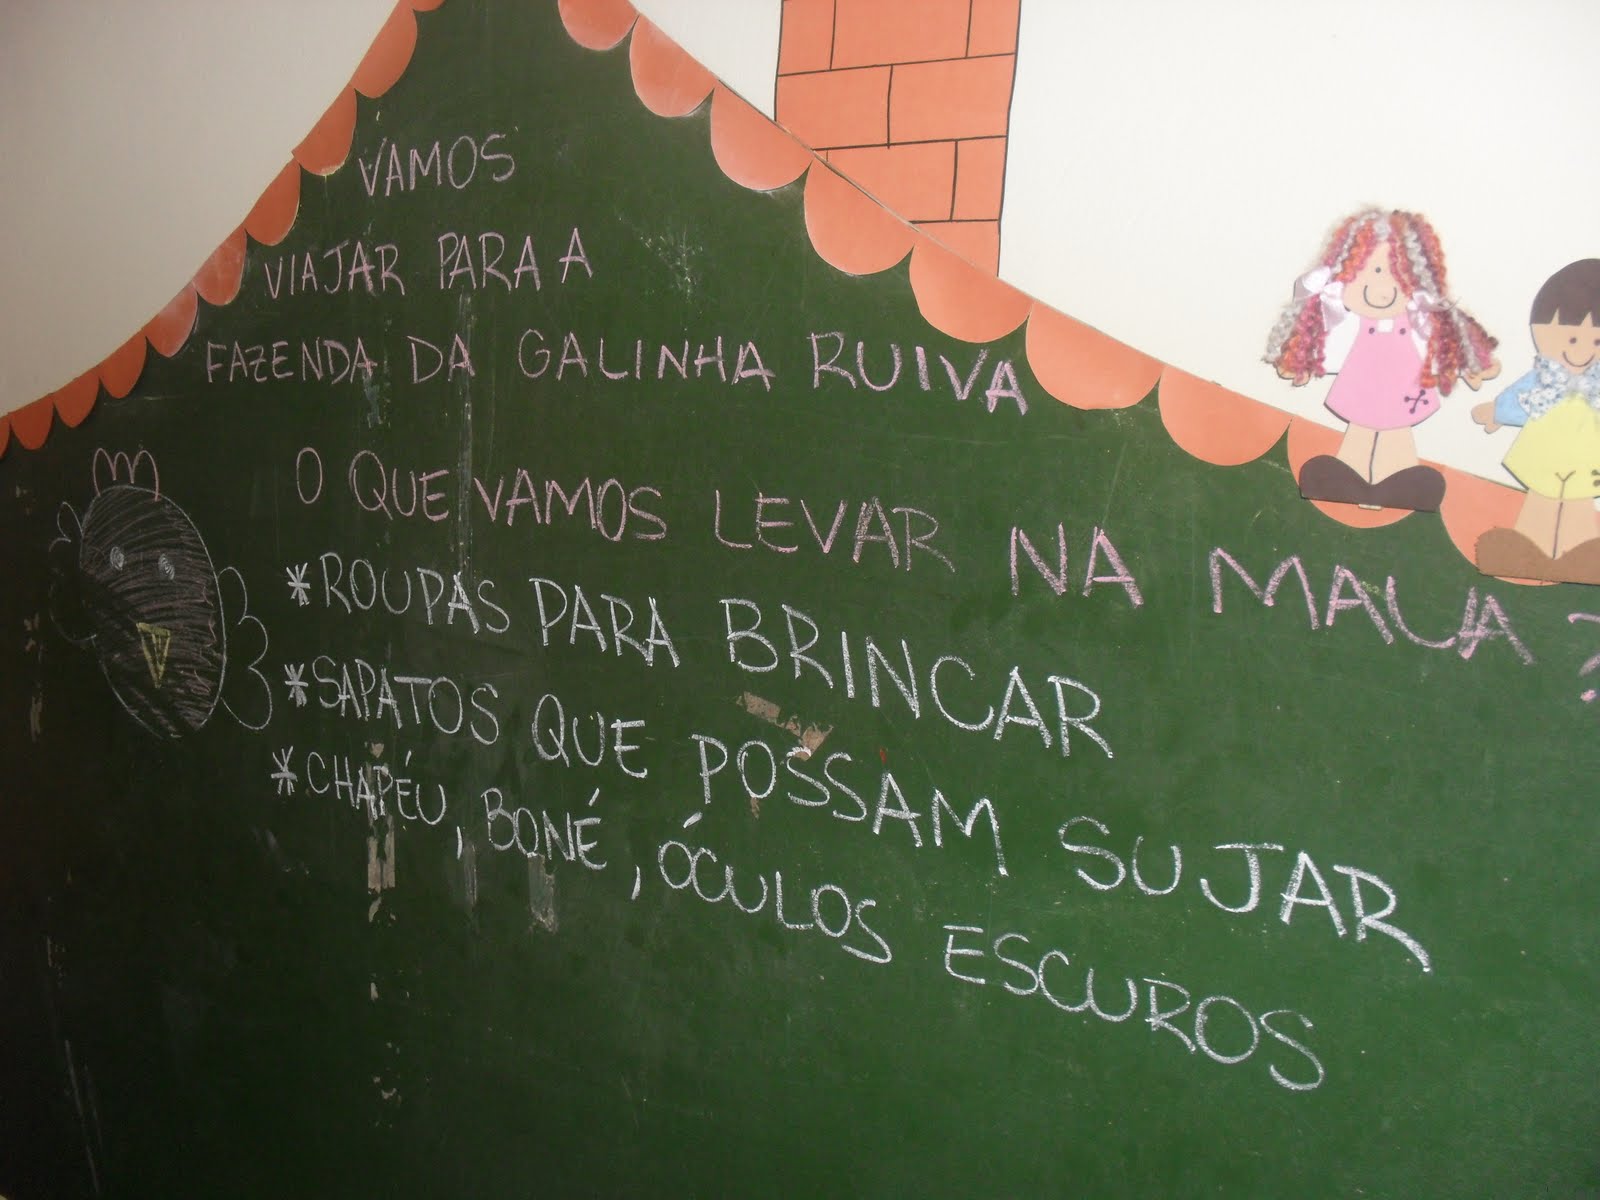 VAMOS
VIAJAR PARA A
FAZENDA DA GALINHA RUIVA
O QUE VAMOS LEVAR NA MALA?
*ROUPAS PARA BRINCAR
*SAPATOS QUE POSSAM SUJAR
*CHAPÉU, BONÉ, ÓCULOS ESCUROS